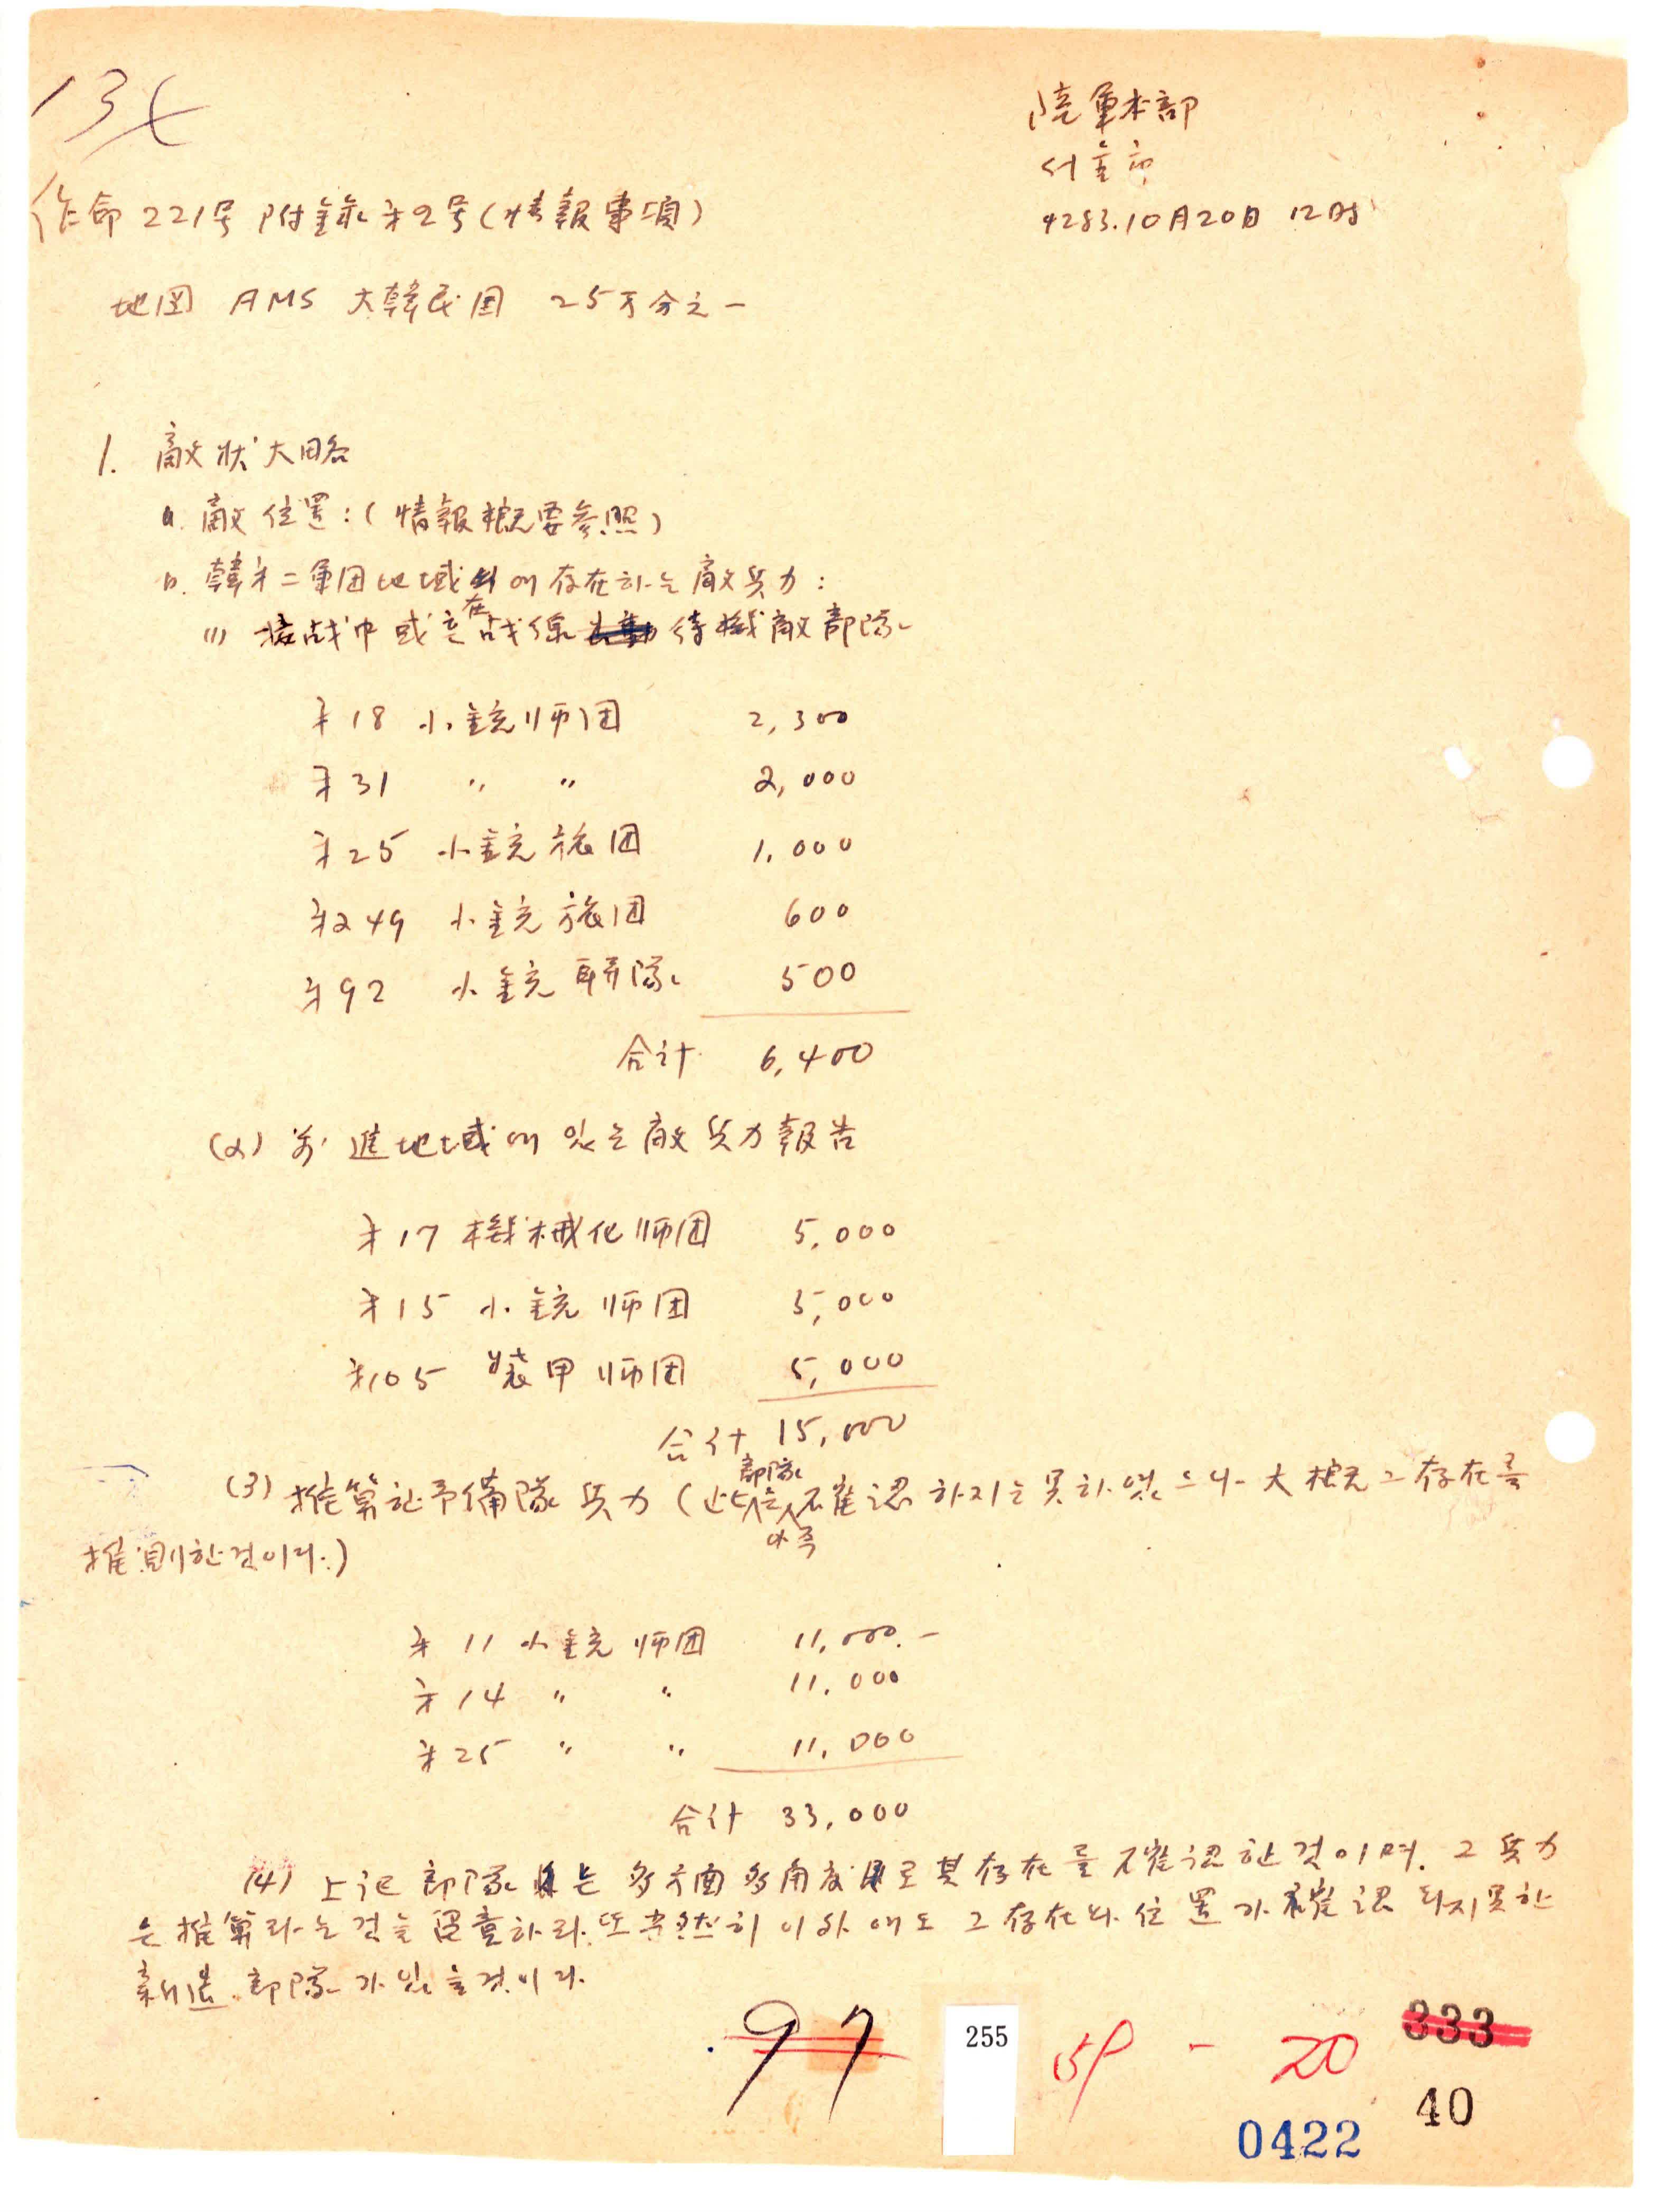 134
陸軍本部
서울市
4283.10月20日 12時
作命 221号 附錄 才2号 (情報事項)
地図 AMS 大韓民国 25万分之一
1. 敵狀大略
a. 敵位置: (情報概要参照)
b. 韓才二軍団地域에 存在하는 敵兵力:
(1) 接战中 或은 在战線 待機敵部隊
才18 小銃师团 2,300
才31 〃 〃 2,000
才25 小銃旅团 1,000
才249 小銃旅团 600
才92 小銃联隊 500
合計 6,400
(2) 前進地域에 있는 敵兵力報告
才17 機械化师团 5,000
才15 小銃师团 5,000
才105 裝甲师团 5,000
合計 15,000
(3) 推算된 予備隊兵力 (此部隊는 아즉 確認하지는 못하였으나 大概 그 存在를
推測한것이다.)
才11 小銃师团 11,000.-
才14 〃 〃 11,000
才25 〃 〃 11,000
合計 33,000
(4) 上記部隊는 多方面多角度로 其存在를 確認한것이며. 그 兵力
은 推算라는 것을 留意하라. 또 当然히 이 外에도 그 存在와 位置가 確認되지못한
新造部隊가 있을것이다.
97
255
59 - 20
333
40
0422